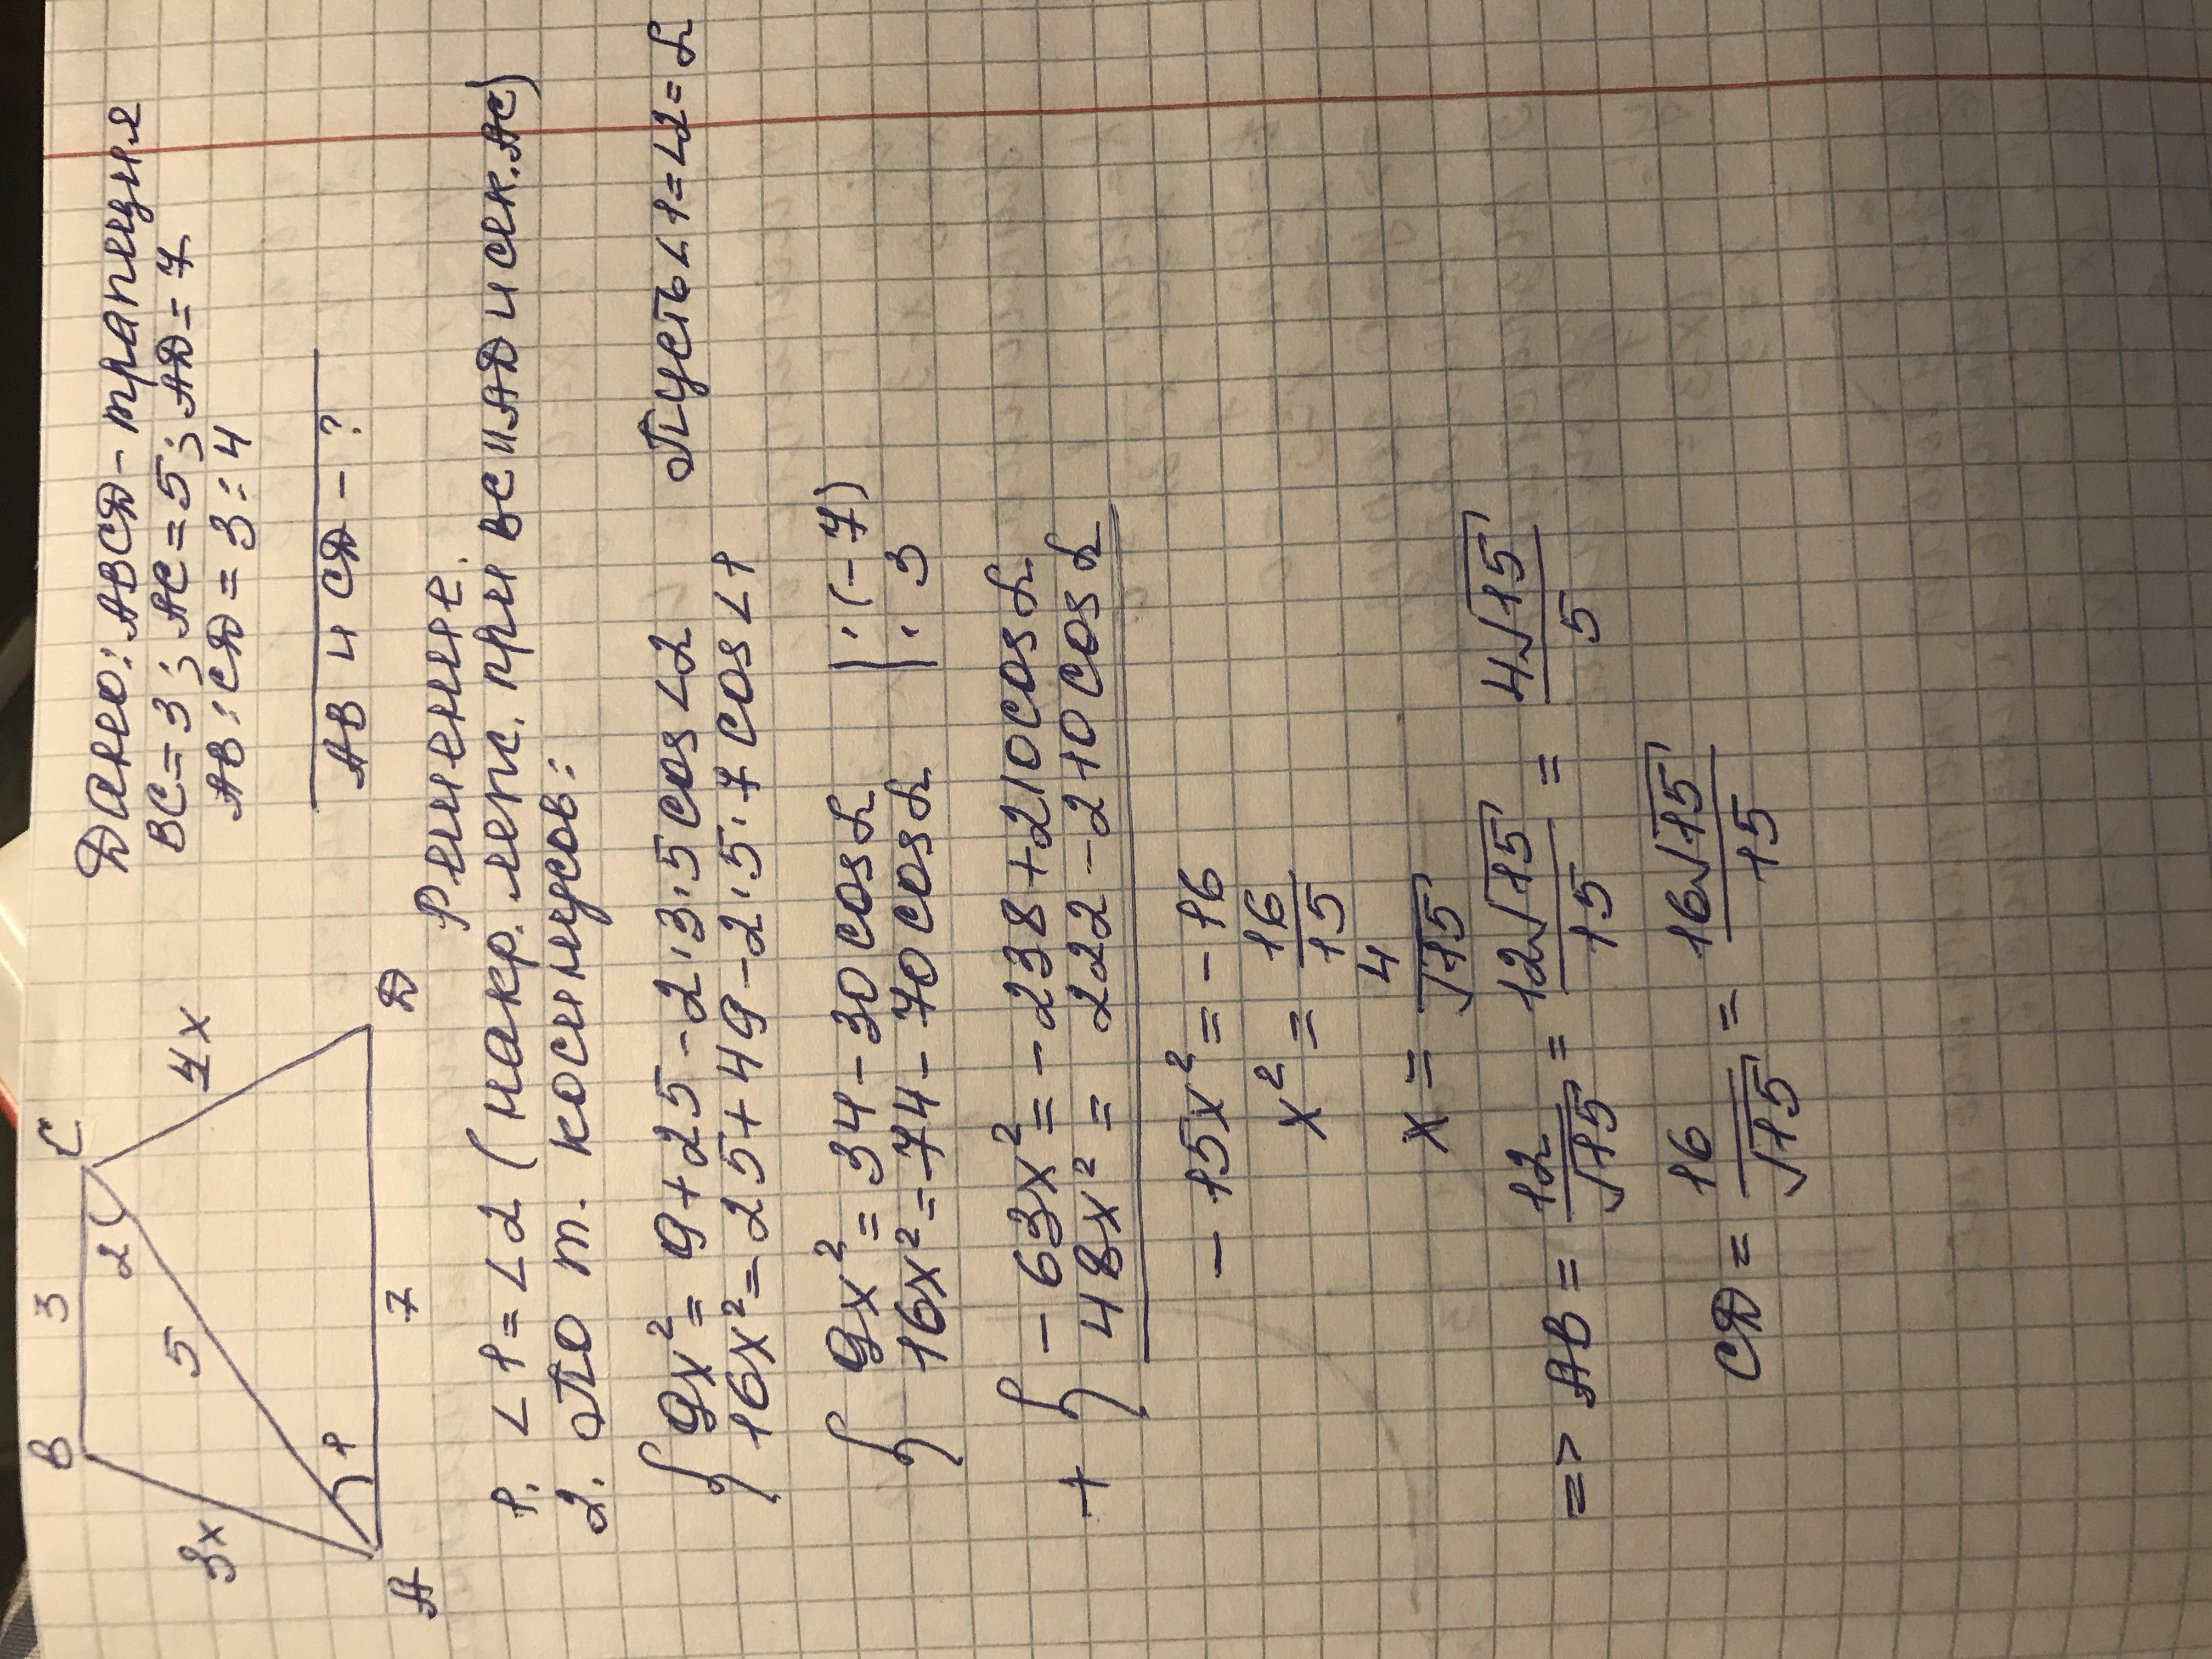 B 3 C
3x 5 2 4x
1
A 7 D
Дано: ABCD - трапеция
BC = 3; AC = 5; AD = 7
AB : CD = 3 : 4
AB и CD - ?
Решение.
1. ∠1 = ∠2 (накр. леж. при BC ∥ AD и сек. AC)
2. По т. косинусов:
9x² = 9 + 25 - 2 · 3 · 5 cos ∠2
16x² = 25 + 49 - 2 · 5 · 7 cos ∠1
Пусть ∠1 = ∠2 = α
9x² = 34 - 30 cos α | · (-7)
16x² = 74 - 70 cos α | · 3
+ { -63x² = -238 + 210 cos α
48x² = 222 - 210 cos α
-15x² = -16
x² = 16/15
x = 4/√15
=> AB = 12/√15 = 12√15/15 = 4√15/5
CD = 16/√15 = 16√15/15